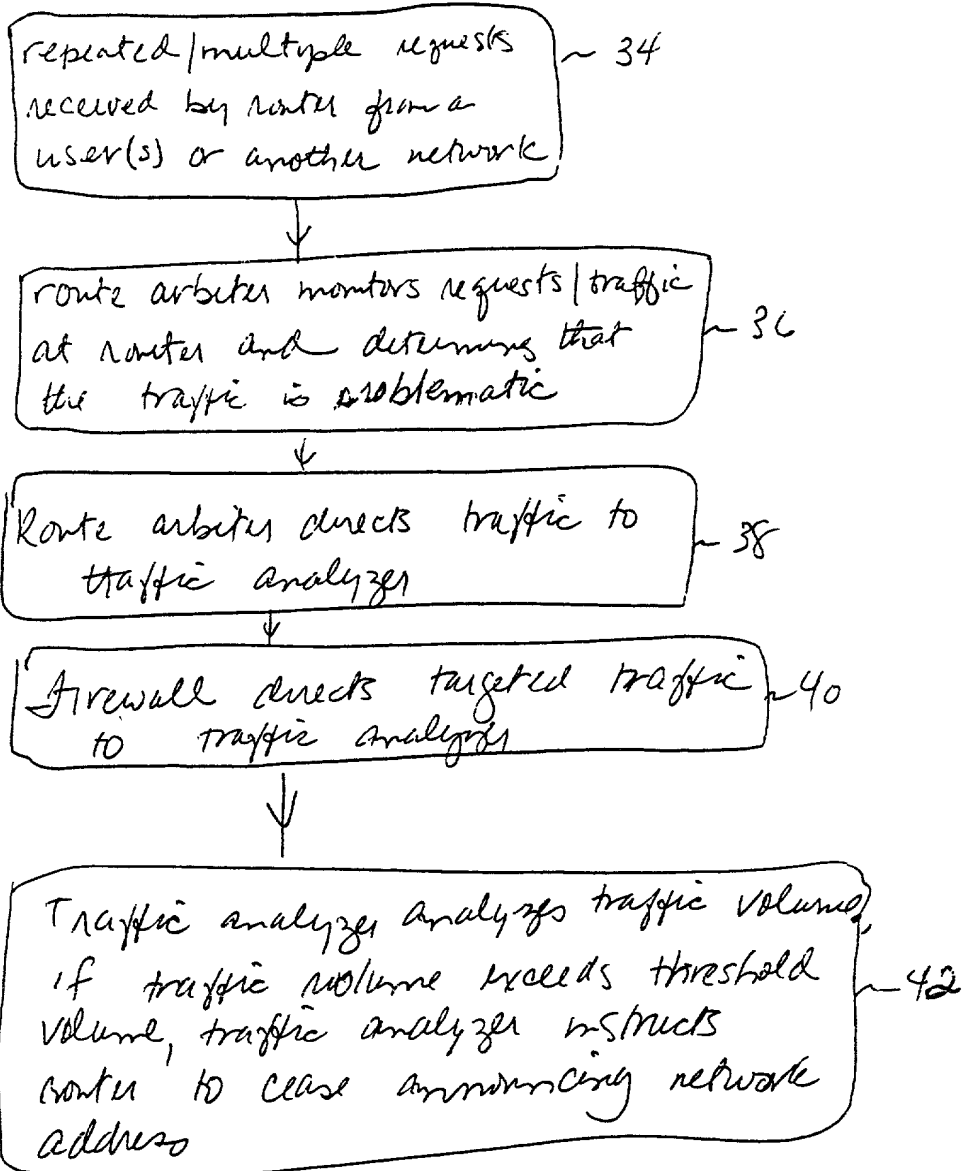 repeated/multiple requests ~ 34
received by router from a
user(s) or another network
route arbiter monitors requests/traffic
at router and determines that ~ 36
the traffic is problematic
Route arbiter directs traffic to
traffic analyzer ~ 38
Firewall directs targeted traffic ~ 40
to traffic analyzer
Traffic analyzer analyzes traffic volume,
if traffic volume exceeds threshold ~ 42
volume, traffic analyzer instructs
router to cease announcing network
address